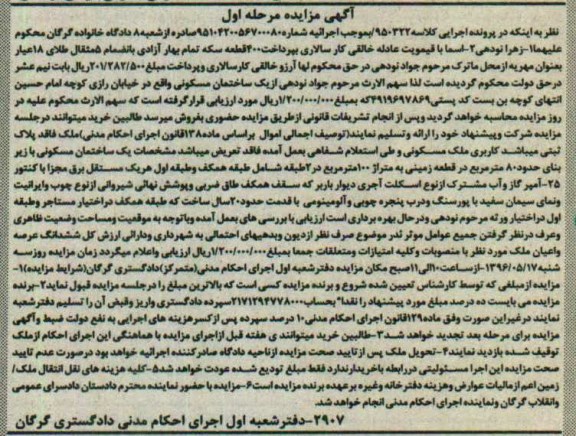 آگهی مزایده مرحله اول
نظر به اینکه در پرونده اجرایی کلاسه ۹۵۰۳۲۲/بموجب اجرائیه شماره ۹۵۱۰۴۲۰۰۵۶۷۰۰۰۸۰صادره از شعبه۸ دادگاه خانواده گرگان محکوم
علیهما۱-زهرا نودهی۲-اسما با قیمویت عدابله خالقی کار سالاری بپرداخت۴۰۰قطعه سکه تمام بهار آزادی بانضمام ۵مثقال طلای ۱۸عیار
بعنوان مهریه ازمحل ماترک مرحوم جواد نودهی در حق محکوم لها آرزو خالقی کارسالاری وپرداخت مبلغ۲۰۱/۲۸۲/۵۰۰ریال بابت نیم عشر
درحق دولت محکوم گردیده است لذا سهم الارث مرحوم جواد نودهی ازیک ساختمان مسکونی واقع در خیابان رازی کوچه امام حسین
انتهای کوچه بن بست کد پستی۴۹۱۹۶۹۷۸۶۹که بمبلغ۱/۲۰۰/۰۰۰/۰۰۰ریال مورد ارزیابی قرارگرفته است که سهم الارث محکوم علیه در
روز مزایده محاسبه خواهد گردید پس از انجام تشریفات قانونی ازطریق مزایده حضوری بفروش میرسد طالبین خرید میتوانند درجلسه
مزایده شرکت وپیشنهاد خود را ارائه وتسلیم نمایند(توصیف اجمالی اموال براساس ماده۱۳۸قانون اجرای احکام مدنی)ملک فاقد پلاک
ثبتی میباشد کاربری ملک مسکونی و طی استعلام شفاهی بعمل آمده فاقد تعریض میباشد مشخصات یک ساختمان مسکونی با زیر
بنای حدود۸۰ مترمربع در قطعه زمینی به متراژ ۱۰۰مترمربع در۲طبقه شامل طبقه همکف وطبقه اول هریک مستقل برق مجزا با کنتور
۲۵-آمپر گاز وآب مشترک ازنوع اسکلت آجری دیوار باربر که سقف همکف طاق ضربی وپوشش نهائی شیروانی ازنوع چوب وایرانیت
ونمای سیمان سفید با پورسنگ ودرب پنجره چوبی وآلومینومی با قدمت حدود۲۰سال ساخت که طبقه همکف دراختیار مستاجر وطبقه
اول دراختیار ورثه مرحوم نودهی ودرحال بهره برداری است ارزیابی با بررسی های بعمل آمده وباتوجه به موقعیت ومساحت وضعیت ظاهری
وعرف درنظر گرفتن جمیع عوامل موثر ثدر موضوع صرف نظر ازدیون وبدهیهای احتمالی به شهرداری ودارائی ارزش کل ششدانگ عرصه
واعیان ملک مورد نظر با منصوبات وکلیه امتیازات ومتعلقات جمعا بمبلغ۱/۲۰۰/۰۰۰/۰۰۰ریال ارزیابی واعلام میگردد زمان مزایده روزسه
شنبه۱۳۹۶/۰۵/۱۷ -ازساعت۱۰الی۱۱صبح مکان مزایده دفترشعبه اول اجرای احکام مدنی(متمرکز)دادگستری گرگان(شرایط مزایده)۱-
مزایده ازمبلغی که توسط کارشناس تعیین شده شروع و برنده مزایده کسی است که بالاترین مبلغ را درجلسه مزایده قبول نماید۲-برنده
مزایده می بایست ده درصد مبلغ مورد پیشنهاد را نقدا" بحساب۲۱۷۱۲۹۴۷۷۸۰۰۰سپرده دادگستری واریز وقبض آن را تسلیم دفترشعبه
نمایند درغیراین صورت وفق ماده۱۲۹قانون اجرای احکام مدنی۱۰ درصد سپرده پس ازکسرهزینه های اجرایی به نفع دولت ضبط وآگهی
مزایده برای مرحله بعد تجدید خواهد شد۳-طالبین خرید میتوانند ی هفته قبل ازاجرای مزایده با هماهنگی این اجرای احکام ازملک
توقیف شده بازدید نمایند۴-تحویل ملک پس از تایید صحت مزایده ازناحیه دادگاه صادرکننده اجرائیه خواهد بود درصورت عدم تایید
صحت مزایده این اجرا مسئولیتی دررابطه باخریدارندارد فقط مبلغ تودیع شده عودت خواهد شد۵-کلیه هزینه های نقل انتقال ملک/
زمین اعم ازمالیات عوارض وهزینه دفترخانه وغیره برعهده برنده مزایده است۶-مزایده با حضور نماینده محترم دادستان دادسرای عمومی
وانقلاب گرگان ونماینده اجرای احکام مدنی انجام خواهد شد.
۲۹۰۷-دفترشعبه اول اجرای احکام مدنی دادگستری گرگان